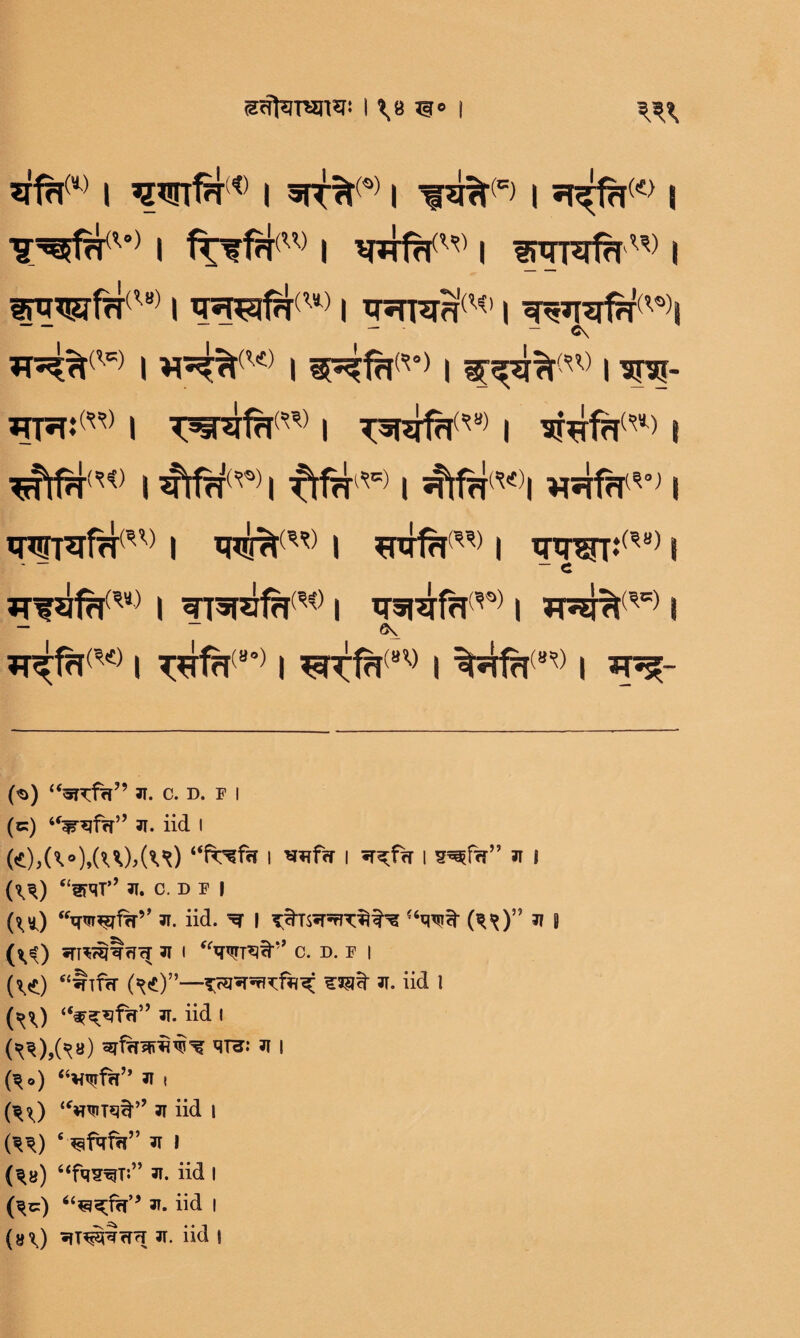 तृतीयाध्यायः । १४ ख० ।
यति(५) । गृणाति(६) । जरते(७) । ह्वयते(८) । नदति(९) ।
पृच्छति(१०) । रिहति(११) । धमति(१२) । कृपायति(१३) ।
कृपण्यति(१४) । पनस्यति(१५) । पनायते(१६) । वल्गूयति(१७)।
मन्दते(१८) । भन्दते(१९) । छन्दति(२०) । छदयते(२१) । शश-
मानः(२२) । रञ्जयति(२३) । रजयति(२४) । शंसति(२५) ।
स्तौति(२६) । यौति(२७)। रौति(२८) । नौति(२९)। भनति(३०) ।
पणायति(३१) । पणते(३२) । सपति(३३) । पपृक्षाः(३४) ।
महयति(३५) । वाजयति(३६) । पूजयति(३७) । मन्यते(३८) ।
मदति(३९) । रसति(४०) । स्वरति(४१) । वेनति(४२) । मन्द्र-
(७) “जरति” ग. C. D. F ।
(८) “ह्वयति” ग. iid ।
(९),(१०),(११),(१२) “रिहति । धमति । नदति । पृच्छति” ग ।
(१३) ग. C. D F ।
(१५) ग. iid. च ।
(१६) नास्त्येतत् ग । “पणायते” C. D. F ।
(१९) ग. iid ।
(२१) “छदयति” ग. iid ।
(२३),(२४) पाठः ग ।
(३०) “भणति” ग ।
(३१) “भणायते” ग iid ।
(३३) ग ।
(३४) ग. iid ।
(३८) ग. iid ।
(४१) नास्त्येतत् ग. iid ।